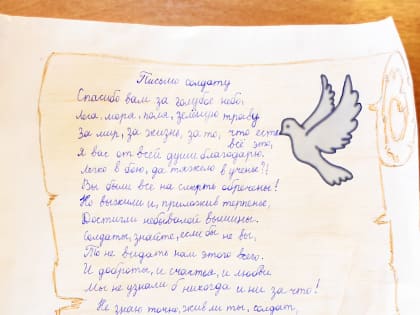 Письмо солдату
Спасибо вам за голубое небо,
Леса, моря, поля, зелёную траву
За мир, за жизнь, за то, что есть
всё это,
Я вас от всей души благодарю,
Легко в бою, да тяжело в ученье?!
Вы были все на смерть обречены!
Но выжили и, приложив терпенье,
Достигли небывалой вышины.
Солдаты, знайте, если бы не вы,
То не видать нам этого всего.
И доброты, и счастья, и любви
Мы не узнали б никогда и ни за что!
Не знаю точно, жив ли ты, солдат,